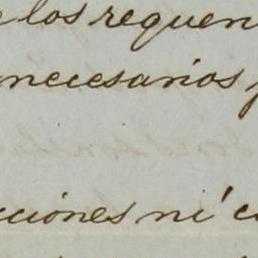 los requen
necesarios
cciones ni